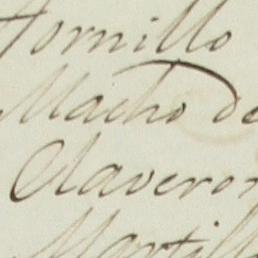 Tornillo
Macho de
Claveron
Martill